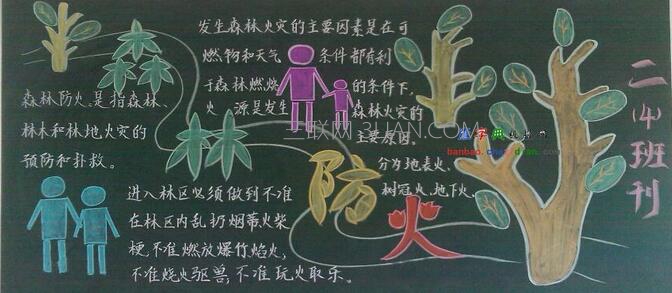 发生森林火灾的主要因素是在可
燃物和天气 条件都有利
于森林燃烧 的条件下,
火 源是发生 森林火灾的
主要原因。
森林防火,是指森林、
林木和林地火灾的
预防和扑救。
分为地表火、
树冠火、地下火、
森林防火
进入林区必须做到不准
在林区内乱扔烟蒂火柴
梗,不准燃放爆竹焰火,
不准烧火驱兽,不准玩火取乐。
二(4)班刊
banbao.chazidian.com